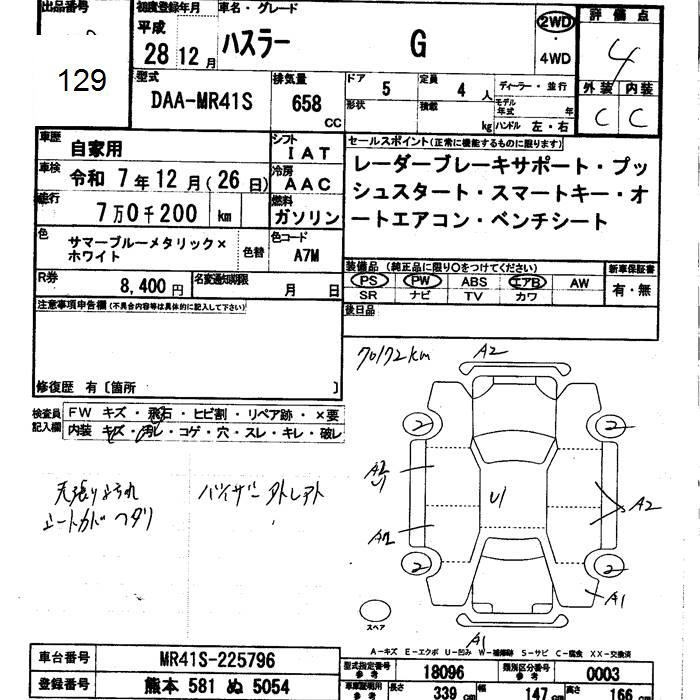 出品番号 初度登録年月 車名・グレード 評価点
129
平成 28年 12月 ハスラー G 2WD ・ 4WD 4
型式 排気量 ドア 5 定員 4人 ディーラー・並行 外装 内装
DAA-MR41S 658 CC 形状 積載 kg モデル年式 年 ハンドル 左・右 C C
車歴 自家用 シフト IAT
車検 令和 7年12月(26日) 冷房 AAC
走行 7万0千200 km 燃料 ガソリン
色 サマーブルーメタリック×ホワイト 色替 色コード A7M
R券 8,400円 名変通知期限 月 日
セールスポイント(正常に機能するものに限ります)
レーダーブレーキサポート・プッ
シュスタート・スマートキー・オ
ートエアコン・ベンチシート
装備品(純正品に限り○をつけてください) 新車保証書
PS PW ABS エアB AW 有・無
SR ナビ TV カワ
後日品
注意事項申告欄(不具合内容等は具体的に記入して下さい)
修復歴 有〔箇所 〕
検査員記入欄 FW キズ・飛石・ヒビ割・リペア跡・×要
内装 キズ・汚レ・コゲ・穴・スレ・キレ・破レ
天張りよごれ バイザー
シートカド ヘタリ
70172km
A2
2 2
A2 U1 U1 A2
A2
2 2
A1
A1
スペア
A-キズ E-エクボ U-凹み W-補修跡 S-サビ C-腐食 XX-交換済
車台番号 MR41S-225796 型式指定番号 参考 18096 類別区分番号 参考 0003
登録番号 熊本 581 ぬ 5054 車庫証明用 参考 長さ 339 cm 幅 147 cm 高さ 166 cm